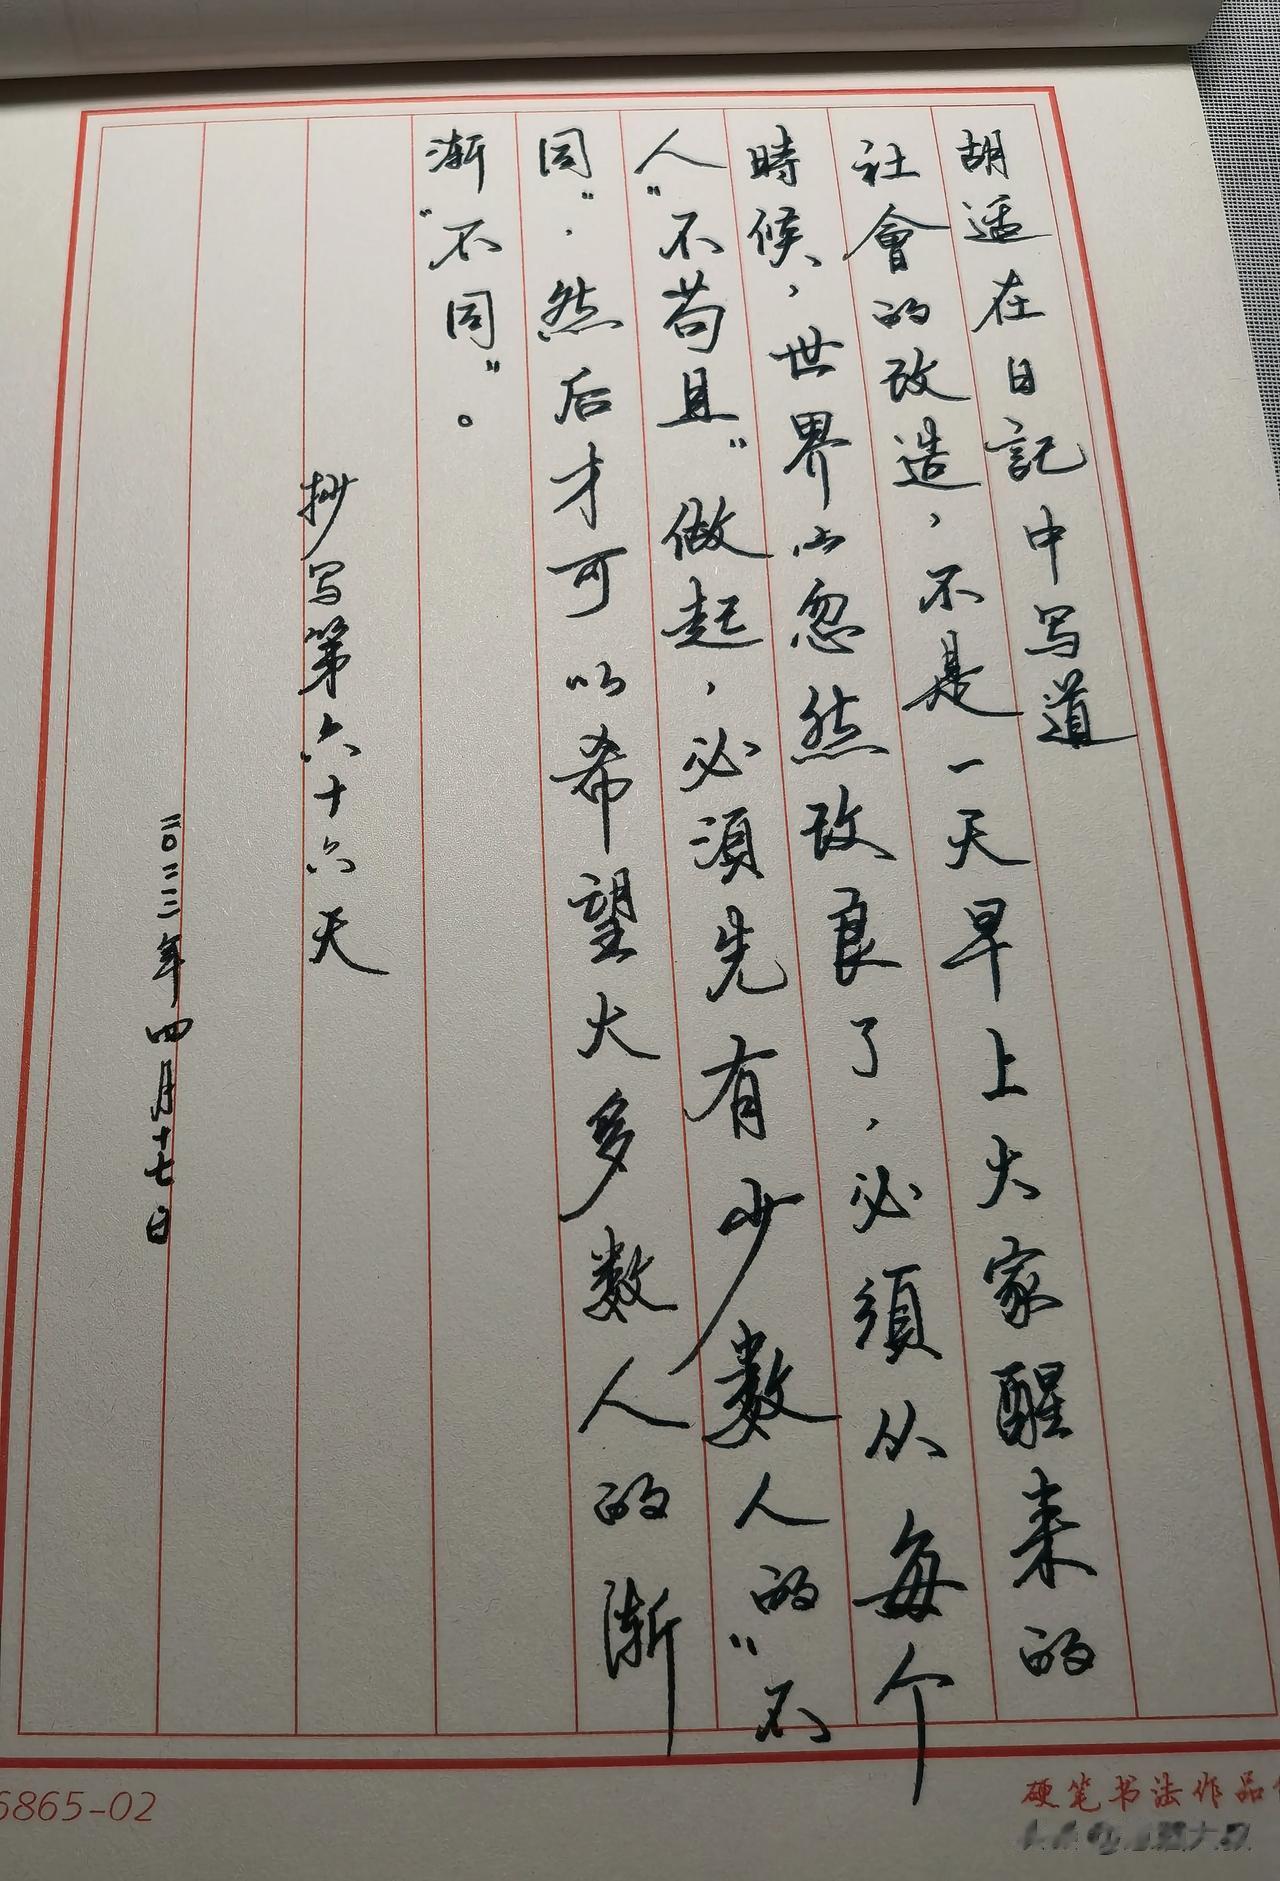 胡适在日記中写道
社會的改造，不是一天早上大家醒来的
時候，世界忽然改良了，必須从每个
人“不苟且”做起，必須先有少数人的“不
同”，然后才可以希望大多数人的渐
渐“不同”。
抄写第六十六天
二〇二三年四月十七日
6865-02
硬笔书法作品